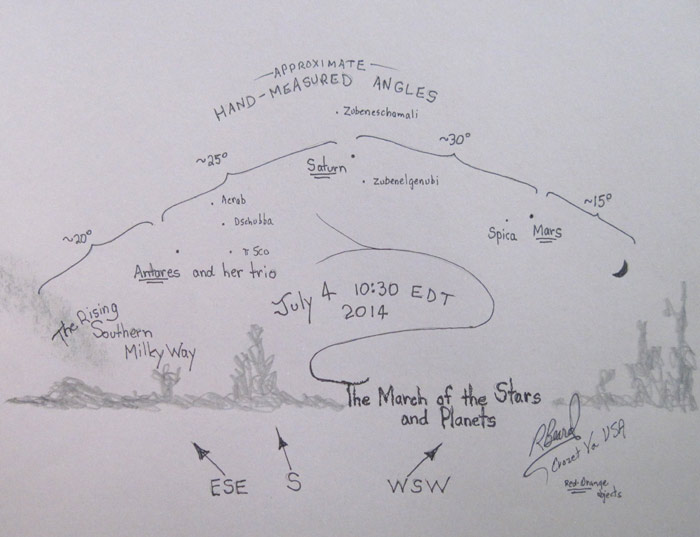 APPROXIMATE
HAND-MEASURED ANGLES
Zubeneschamali
~30°
~25°
Saturn
Zubenelgenubi
Acrab
~15°
Dschubba
~20°
Spica Mars
π Sco
Antares and her trio
July 4 10:30 EDT
2014
The Rising
Southern
Milky Way
The March of the Stars
and Planets
R Beard
Crozet Va USA
ESE
S
WSW
Red-Orange
objects